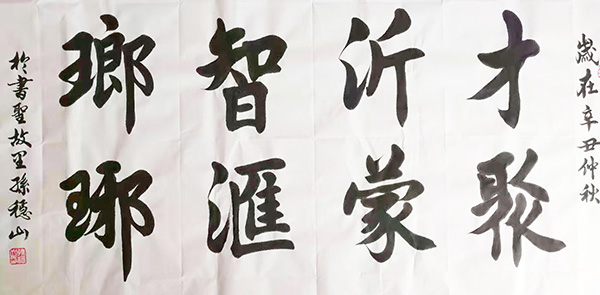 歲在辛丑仲秋
才聚
沂蒙
智滙
瑯琊
於書聖故里孫穗山